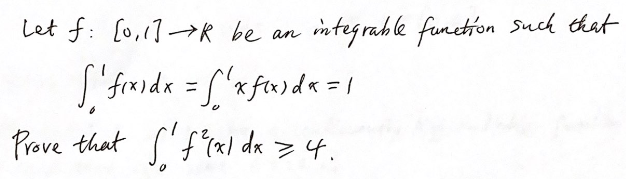 Let f: [0,1] → R be an integrable function such that
∫₀¹ f(x) dx = ∫₀¹ x f(x) dx = 1
Prove that ∫₀¹ f²(x) dx ≥ 4.